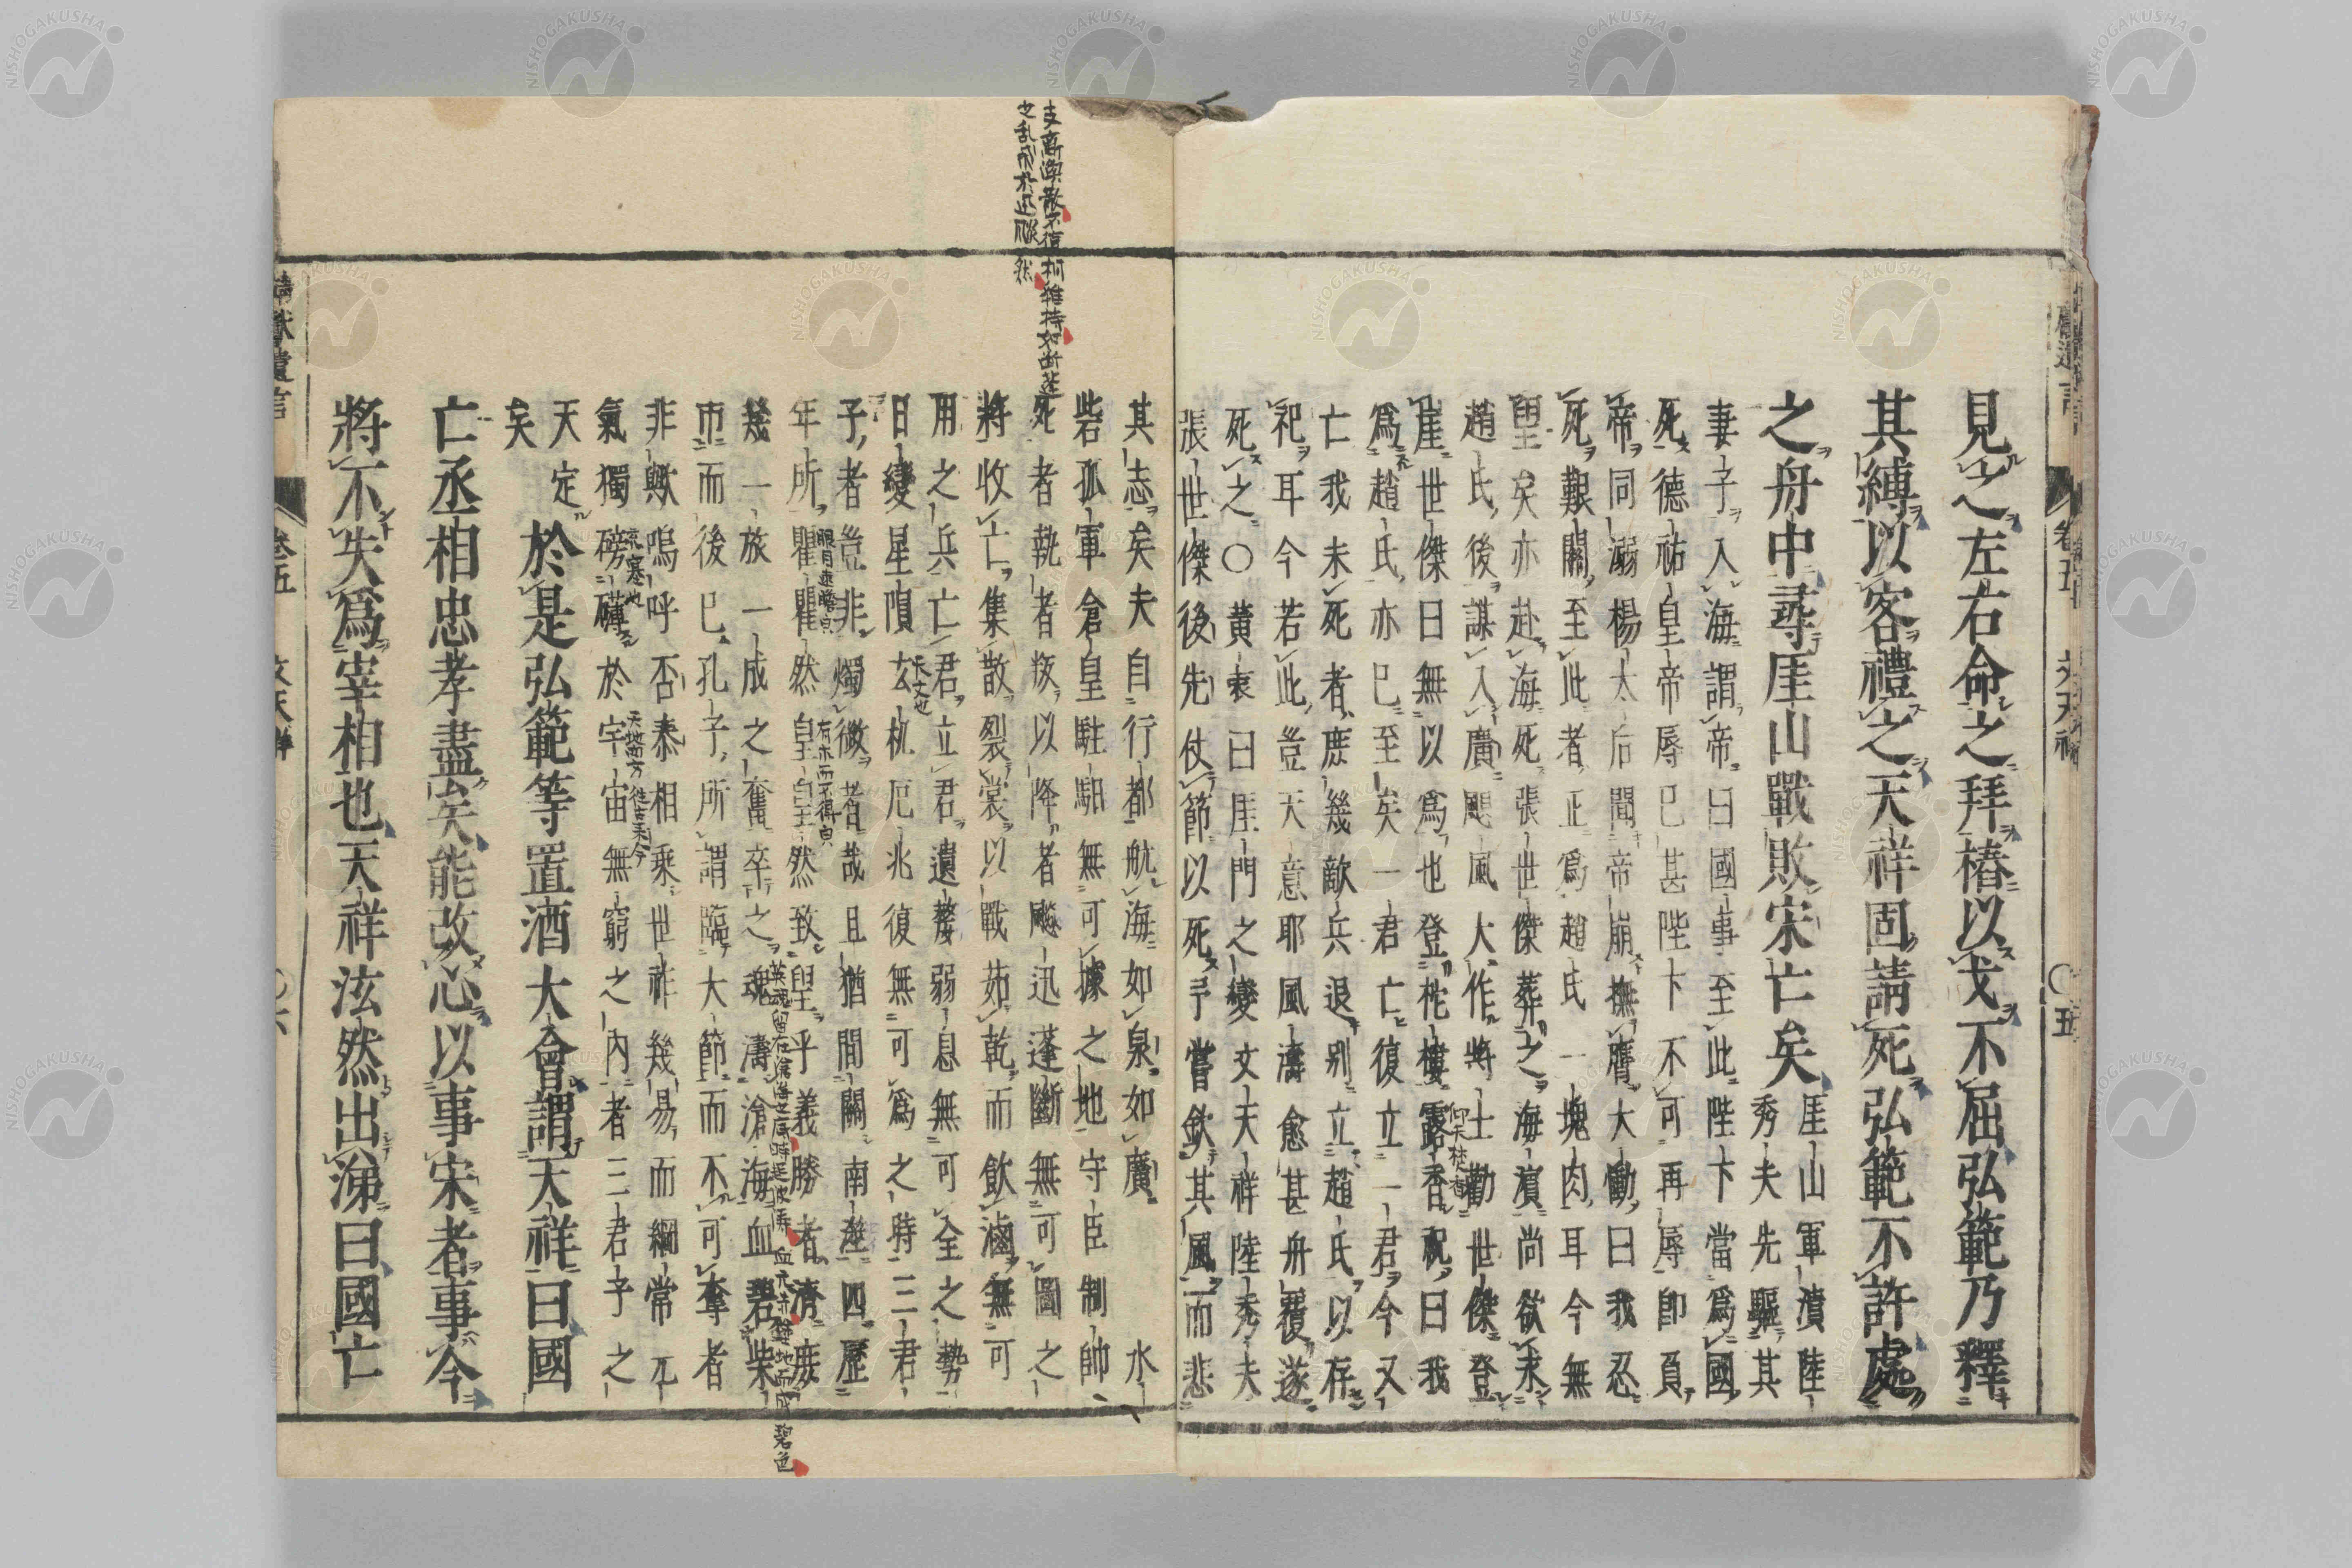 見之左右命之拜椿以戈不屈弘範乃釋
其縛以客禮之天祥固請死弘範不許處
之舟中尋厓山戰敗宋亡矣
厓山軍潰陸
秀夫先驅其
妻子入海謂帝曰國事至此陛下當爲國
死德祐皇帝辱已甚陛下不可再辱卽負
帝同溺楊太后聞帝崩撫膺大慟曰我忍
死艱關至此者正爲趙氏一塊肉耳今無
望矣亦赴海死張世傑葬之海濱尚欲求
趙氏後謀入廣颶風大作將士勸世傑登
崖世傑曰無以爲也登柁樓露香祝曰我
仰天焚香
爲趙氏亦已至矣一君亡復立一君今又
亡我未死者庶幾敵兵退別立趙氏以存
祀耳今若此豈天意耶風濤愈甚舟覆遂
死之○黃衷曰厓門之變文天祥陸秀夫
張世傑後先仗節以死予嘗欽其風而悲
卷五
文天祥
○五
支離渙散不復相維持如斷蓬
之乱飛於迅飈然
其志矣夫自行都航海如泉如廣水
砦孤軍倉皇駐馹無可據之地守臣制帥
死者執者叛以降者飈迅蓬斷無可圖之
將收亡集散裂裳以戰茹乾飲滷無可
用之兵亡君立君遺孽弱息無可全之勢
天文也
日變星隕玄杌厄兆復無可爲之時三君
子者豈非燭微者哉且猶間關南遊四歷
年所瞿瞿然皇皇然致望乎義勝者濟庶
眼目速瞻皃
有求而不得皃
幾一旅一成之奮卒之魂濤滄海血碧柴
英魂留在滄海之底時起波濤血元赤雖地而成碧色
市而後已孔子所謂臨大節而不可奪者
非歟嗚呼否泰相乘世祚幾易而綱常元
氣獨磅礴於宇宙無窮之內者三君子之
充塞也
天地四方
往古來今
天定
矣
於是弘範等置酒大會謂天祥曰國
亡丞相忠孝盡矣能改心以事宋者事今
將不失爲宰相也天祥泫然出涕曰國亡
靖獻遺言
卷五
文天祥
○六
NISHOGAKUSHA